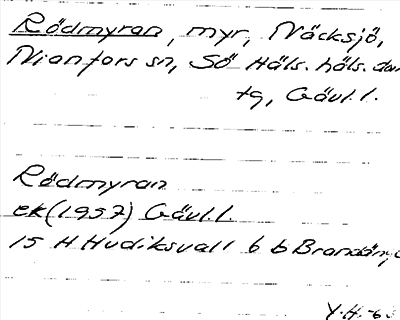 Rödmyran, myr, Näcksjö,
Nianfors sn, Sö Häls. häls. dom
tg, Gävl. l.
Rödmyran
ek (1957) Gävl. l.
15 H Hudiksvall 6 b Brandån,
Y.H. -6